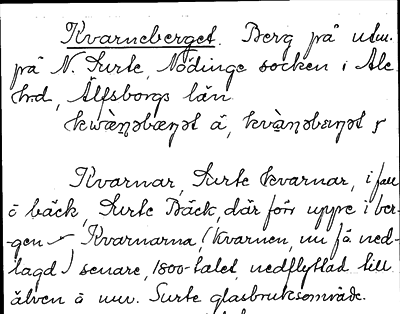 Kvarneberget. Berg på utm.
på N. Surte, Nödinge socken i Ale
hrd, Älfsborgs län.
kwàṇəbæŋət å,
Kvarnar, Surte kvarnar, i fall
å bäck, Surte Bäck, där förr uppe i ber-
gen Kvarnarna, (Kvarnen, nu få ned-
lagd) senare, 1800-talet, nedflyttad till
älven å uw. Surte glasbruksområde.